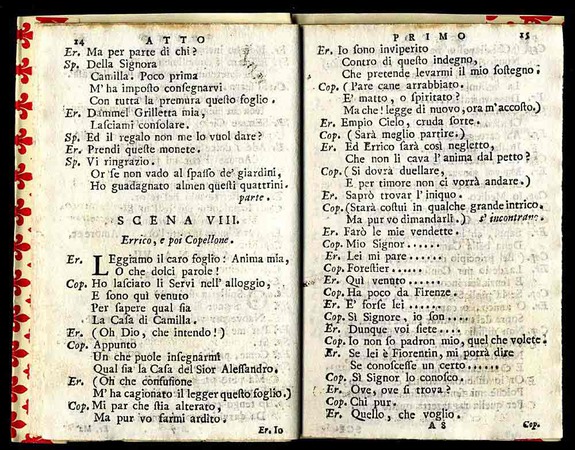 14 ATTO
Er. Ma per parte di chi?
Sp. Della Signora
Camilla. Poco prima
M'ha imposto consegnarvi
Con tutta la premura questo foglio.
Er. Dammel Grilletta mia,
Lasciami consolare.
Sp. Ed il regalo non me lo vuol dare?
Er. Prendi queste monete.
Sp. Vi ringrazio.
Or se non vado al spasso de' giardini,
Ho guadagnato almen questi quattrini.
parte.
SCENA VIII.
Errico, e poi Copellone.
Er. LEggiamo il caro foglio: Anima mia,
O che dolci parole!
Cop. Ho lasciato li Servi nell' alloggio,
E sono quì venuto
Per sapere qual sia
La Casa di Camilla.
Er. (Oh Dio, che intendo!)
Cop. Appunto
Un che puole insegnarmi
Qual sia la Casa del Sior Alessandro.
Er. (Oh che confusione
M'ha cagionato il legger questo foglio.)
Cop. Mi par che stia alterato,
Ma pur vo farmi ardito.
Er. Io
PRIMO 15
Er. Io sono inviperito
Contro di questo indegno,
Che pretende levarmi il mio sostegno.
Cop. (Pare cane arrabbiato.
E' matto, o spiritato?
Ma che! legge di nuovo, ora m'accosto.)
Er. Empio Cielo, cruda sorte.
Cop. (Sarà meglio partire.)
Er. Ed Errico sarà così negletto,
Che non li cava l'anima dal petto?
Cop. (Si dovrà duellare,
E per timore non ci vorrà andare.)
Er. Saprò trovar l'iniquo.
Cop. (Starà costui in qualche grande intrico.
Ma pur vo dimandarli.) s'incontrano.
Er. Farò le mie vendette.
Cop. Mio Signor......
Er. Lei mi pare......
Cop. Forestier......
Er. Quì venuto......
Cop. Ha poco da Firenze.
Er. E' forse lei......
Cop. Sì Signore, io son....
Er. Dunque voi siete....
Cop. Io non so padron mio, quel che volete.
Er. Se lei è Fiorentin, mi potrà dire
Se conoscesse un certo......
Cop. Sì Signor lo conosco.
Er. Ove, ove si trova?
Cop. Chi pur.
Er. Quello, che voglio.
A8 Cop.